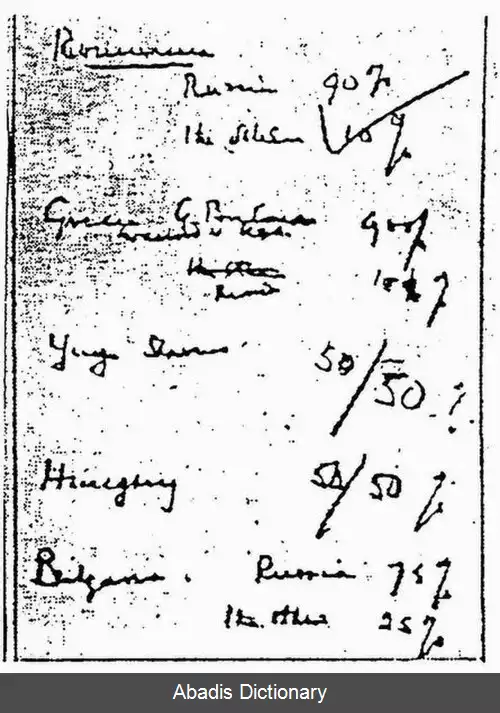 Roumania
Russia 90%
The others 10%
Greece G. Britain 90%
in accord w USA.
Russia 10%
Yugo Slavia
50/50 %
Hungary 50/50 %
Bulgaria. Russia 75%
The others 25%
Abadis Dictionary